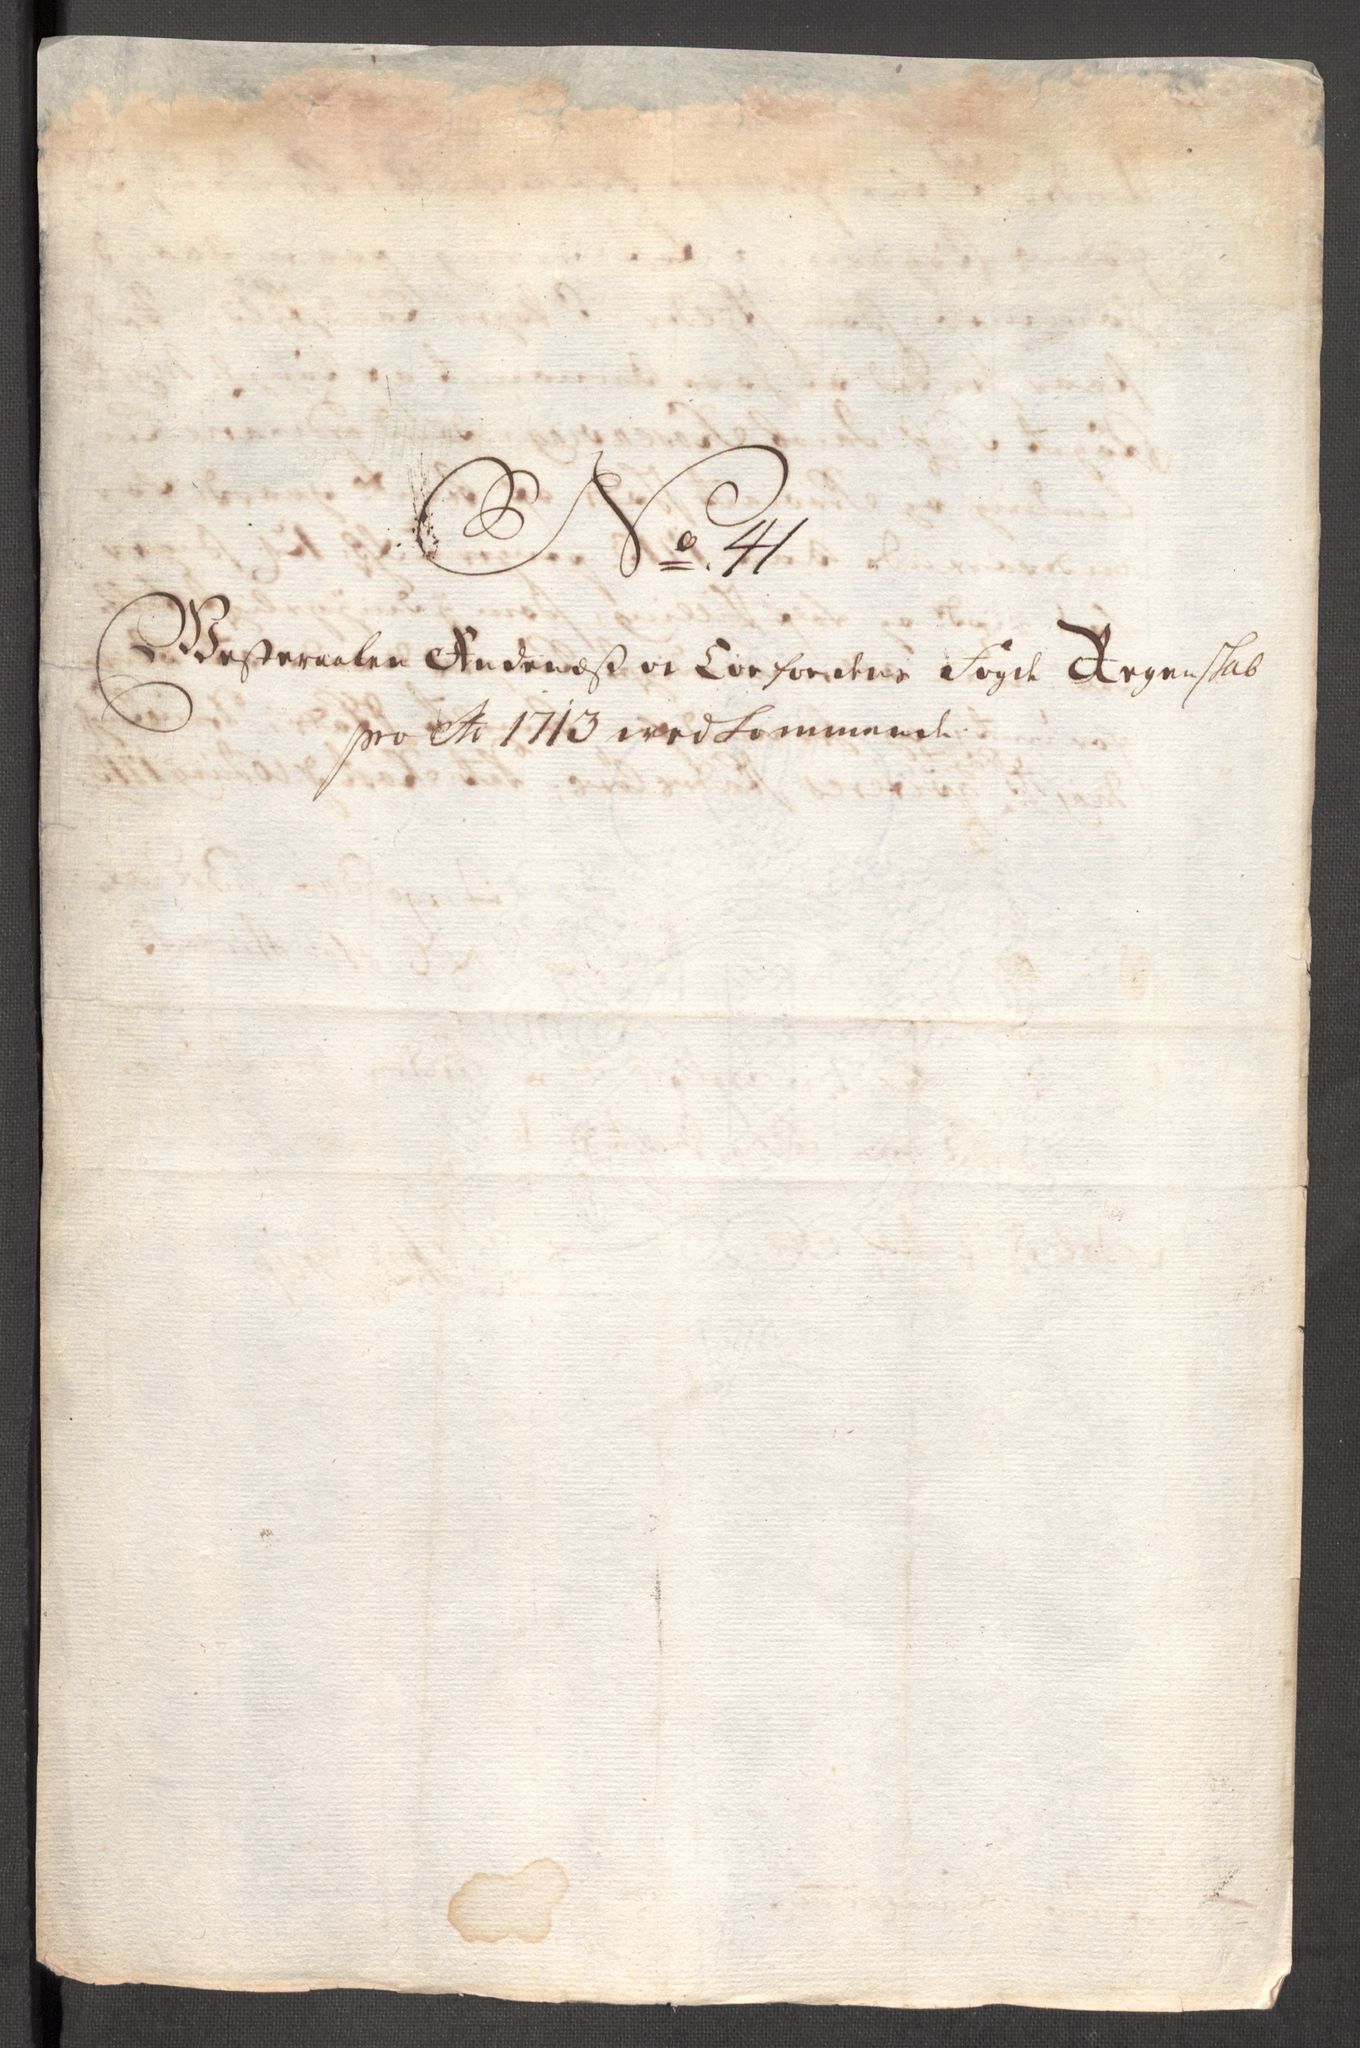 No. 41
Vesteraalen Andenæs oc Lofodens Fogde Regenskab
pro Ao 1713 vedkommende